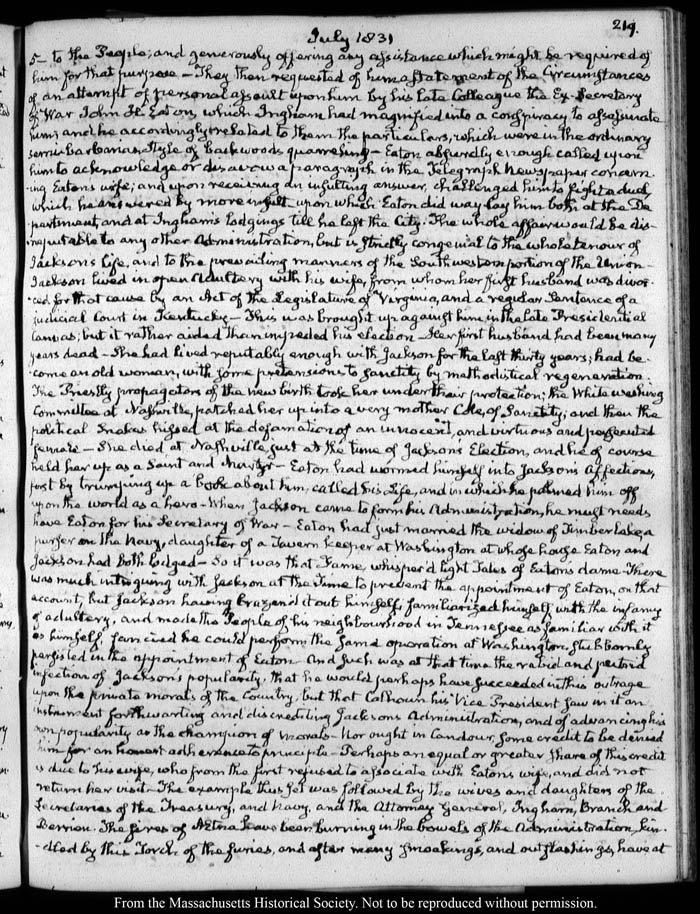 219.
July 1831
5— to the People; and generously offering any assistance which might be required of
him for that purpose — They then requested of him a statement of the Circumstances
of an attempt of personal assault upon him by his late Colleague the Ex-Secretary
of War John H. Eaton, which Ingham had magnified into a conspiracy to assassinate
him; and he accordingly related to them the particulars, which were in the ordinary
semi barbarian style of backwoods quarrelling — Eaton absurdly enough called upon
him to acknowledge or disavow a paragraph in the Telegraph Newspaper concern-
-ing Eatons wife; and upon receiving an insulting answer, challenged him to fight a duel,
which he answered by more insult upon which Eaton did way lay him both at the De-
partment, and at Ingham's Lodgings till he left the City. The whole affair would be dis-
-reputable to any other Administration, but is strictly congenial to the whole tenour of
Jackson's life, and to the prevailing manners of the Southwestern portion of the Union —
Jackson lived in open adultery with his wife, from whom her first husband was divor-
-ced for that cause by an Act of the Legislature of Virginia, and a regular Sentence of a
judicial Court in Kentucky — This was brought up against him in the late Presidential
Canvas; but it rather aided than impeded his election — Her first husband had been many
years dead — She had lived reputably enough with Jackson for the last thirty years; had be-
-come an old woman, with some pretensions to sanctity by methodistical regeneration.
The Priestly propagators of the new birth took her under their protection; the White washing
Committee at Nashville, patched her up into a very mother Cole, of Sanctity; and then the
political Snakes hissed at the defamation of an innocent, and virtuous and persecuted
female — She died at Nashville, just at the time of Jackson's Election, and he of course
held her up as a Saint and Martyr — Eaton had wormed himself into Jackson's affections,
first by trumping up a Book about him, called his Life, and in which he palmed him off
upon the world as a hero — When Jackson came to form his Administration, he must needs
have Eaton for his Secretary of War — Eaton had just married the widow of Timberlake, a
purser in the Navy, daughter of a Tavern keeper at Washington at whose house Eaton and
Jackson had both lodged — So it was that Fame, whisper'd light Tales of Eatons dame — There
was much intriguing with Jackson at the Time to prevent the appointment of Eaton, on that
account, but Jackson having brazen'd it out himself, familiarized himself with the infamy
of adultery, and made the People of his neighbourhood in Tennessee as familiar with it
as himself, fancied he could perform the same operation at Washington, stubbornly
persisted in the appointment of Eaton — And such was at that time the rabid and putrid
infection of Jackson's popularity, that he would perhaps have succeeded in this outrage
upon the private morals of the Country, but that Calhoun his Vice President saw in it an
instrument for thwarting and discrediting Jacksons Administration, and of advancing his
own popularity as the champion of morals — Nor ought in Candour, some credit to be denied
him for an honest adherence to principle — Perhaps an equal or greater share of this credit
is due to his wife, who from the first refused to associate with Eatons wife, and did not
return her visit — The example thus set was followed by the wives and daughters of the
Secretaries of the Treasury, and Navy, and the Attorney General, Ingham, Branch and
Berrien. The fires of Aetna have been burning in the bowels of the Administration, kin-
-dled by this Torch of the furies, and after many smoakings, and outflashings, have at
From the Massachusetts Historical Society. Not to be reproduced without permission.